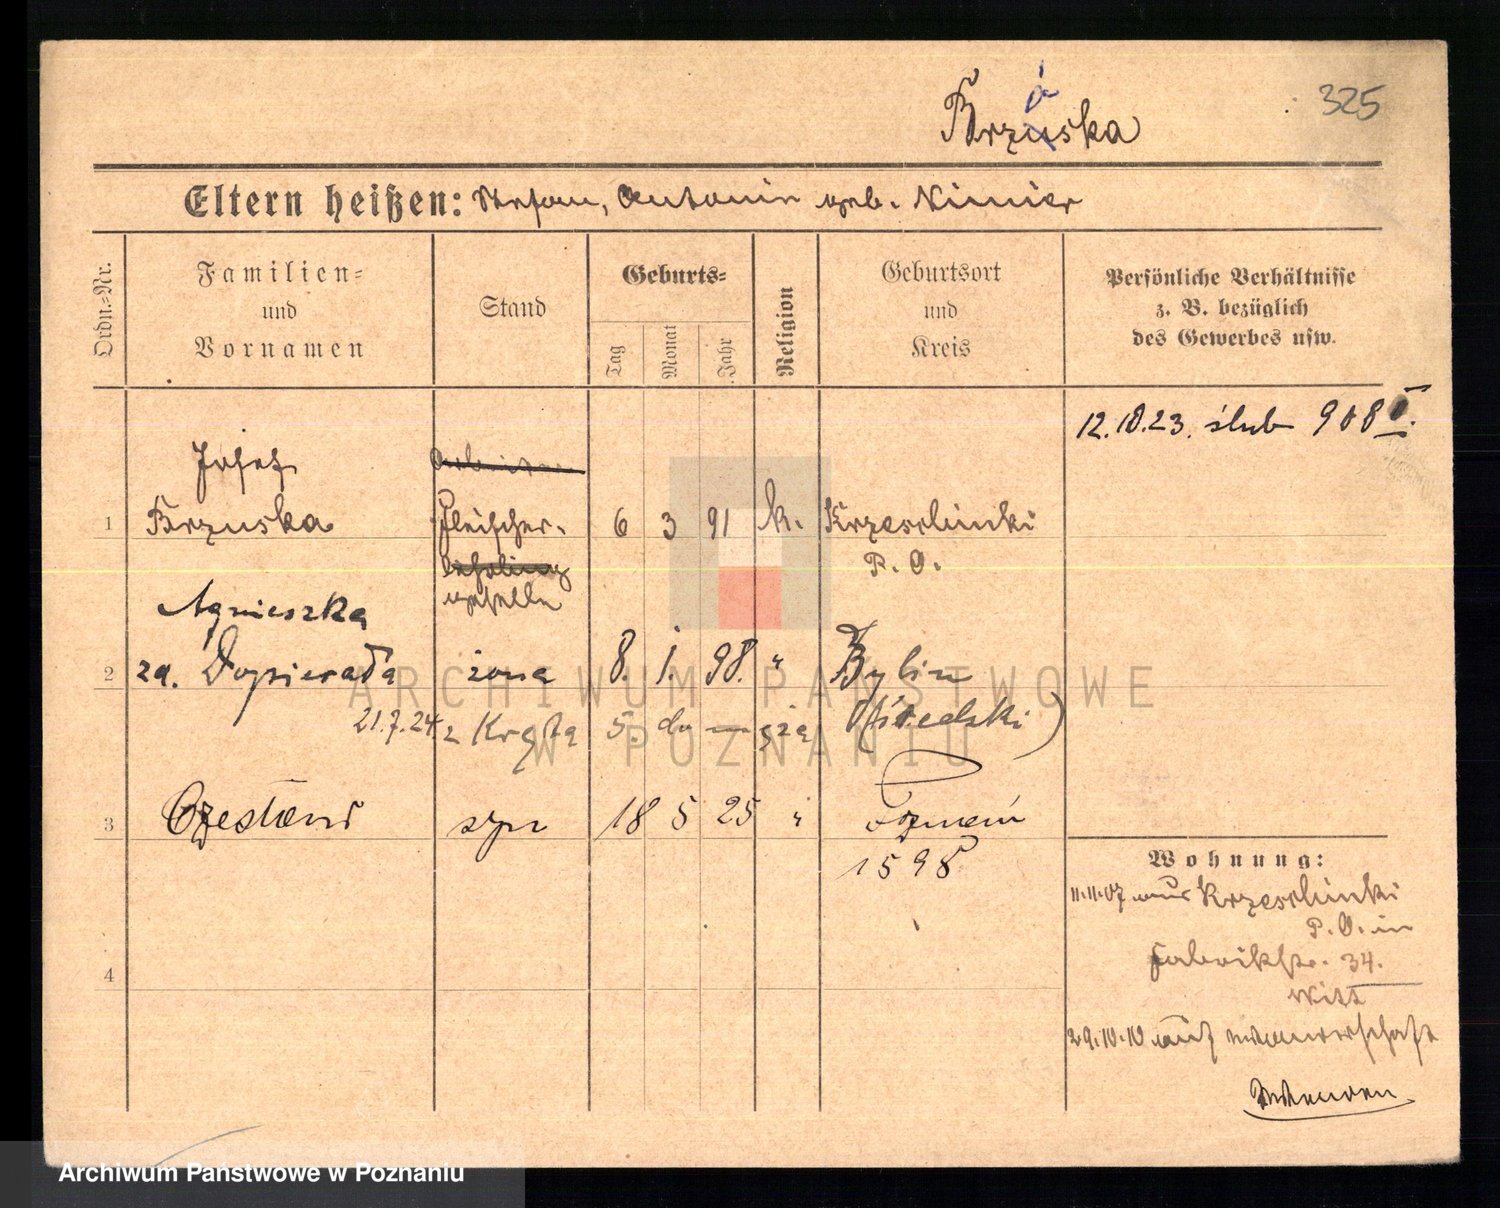 325
Brzuska
Eltern heißen: Stefan, Antonie geb. Nimier
Ordn.-Nr.
Familien- und Vornamen
Stand
Geburts-
Tag
Monat
Jahr
Religion
Geburtsort und Kreis
Persönliche Verhältnisse
z. B. bezüglich
des Gewerbes usw.
12.10.23. ślub 908
Josef
1 Brzuska Fleischer- 6 3 91 k. Krzeslinki
lehrling P. O.
geselle
Agnieszka
2 za. Dopierała żona 8. 1. 98. " Bylin
21.7.24 z (Średzki)
3 Czesław syn 18 5 25 " Poznań
1598
4
Wohnung:
11.11.07 aus Krzeslinki
P. O. in
Fabrikstr. 34.
Witt
29.10.10 auf Wanderschaft
ARCHIWUM PAŃSTWOWE
W POZNANIU
Archiwum Państwowe w Poznaniu